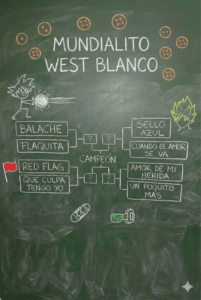 MUNDIALITO
WEST BLANCO
BALACHE
FLAQUITA
RED FLAG
QUE CULPA
TENGO YO
? ?
CAMPEÓN
? ?
SELLO
AZUL
CUANDO EL AMOR
SE VA
AMOR DE MI
HERIDA
UN POQUITO
MAS